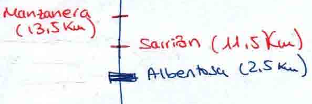 Manzanera
(13,5 Km)
Sarrión (11,5 Km)
Albentosa (2,5 Km)